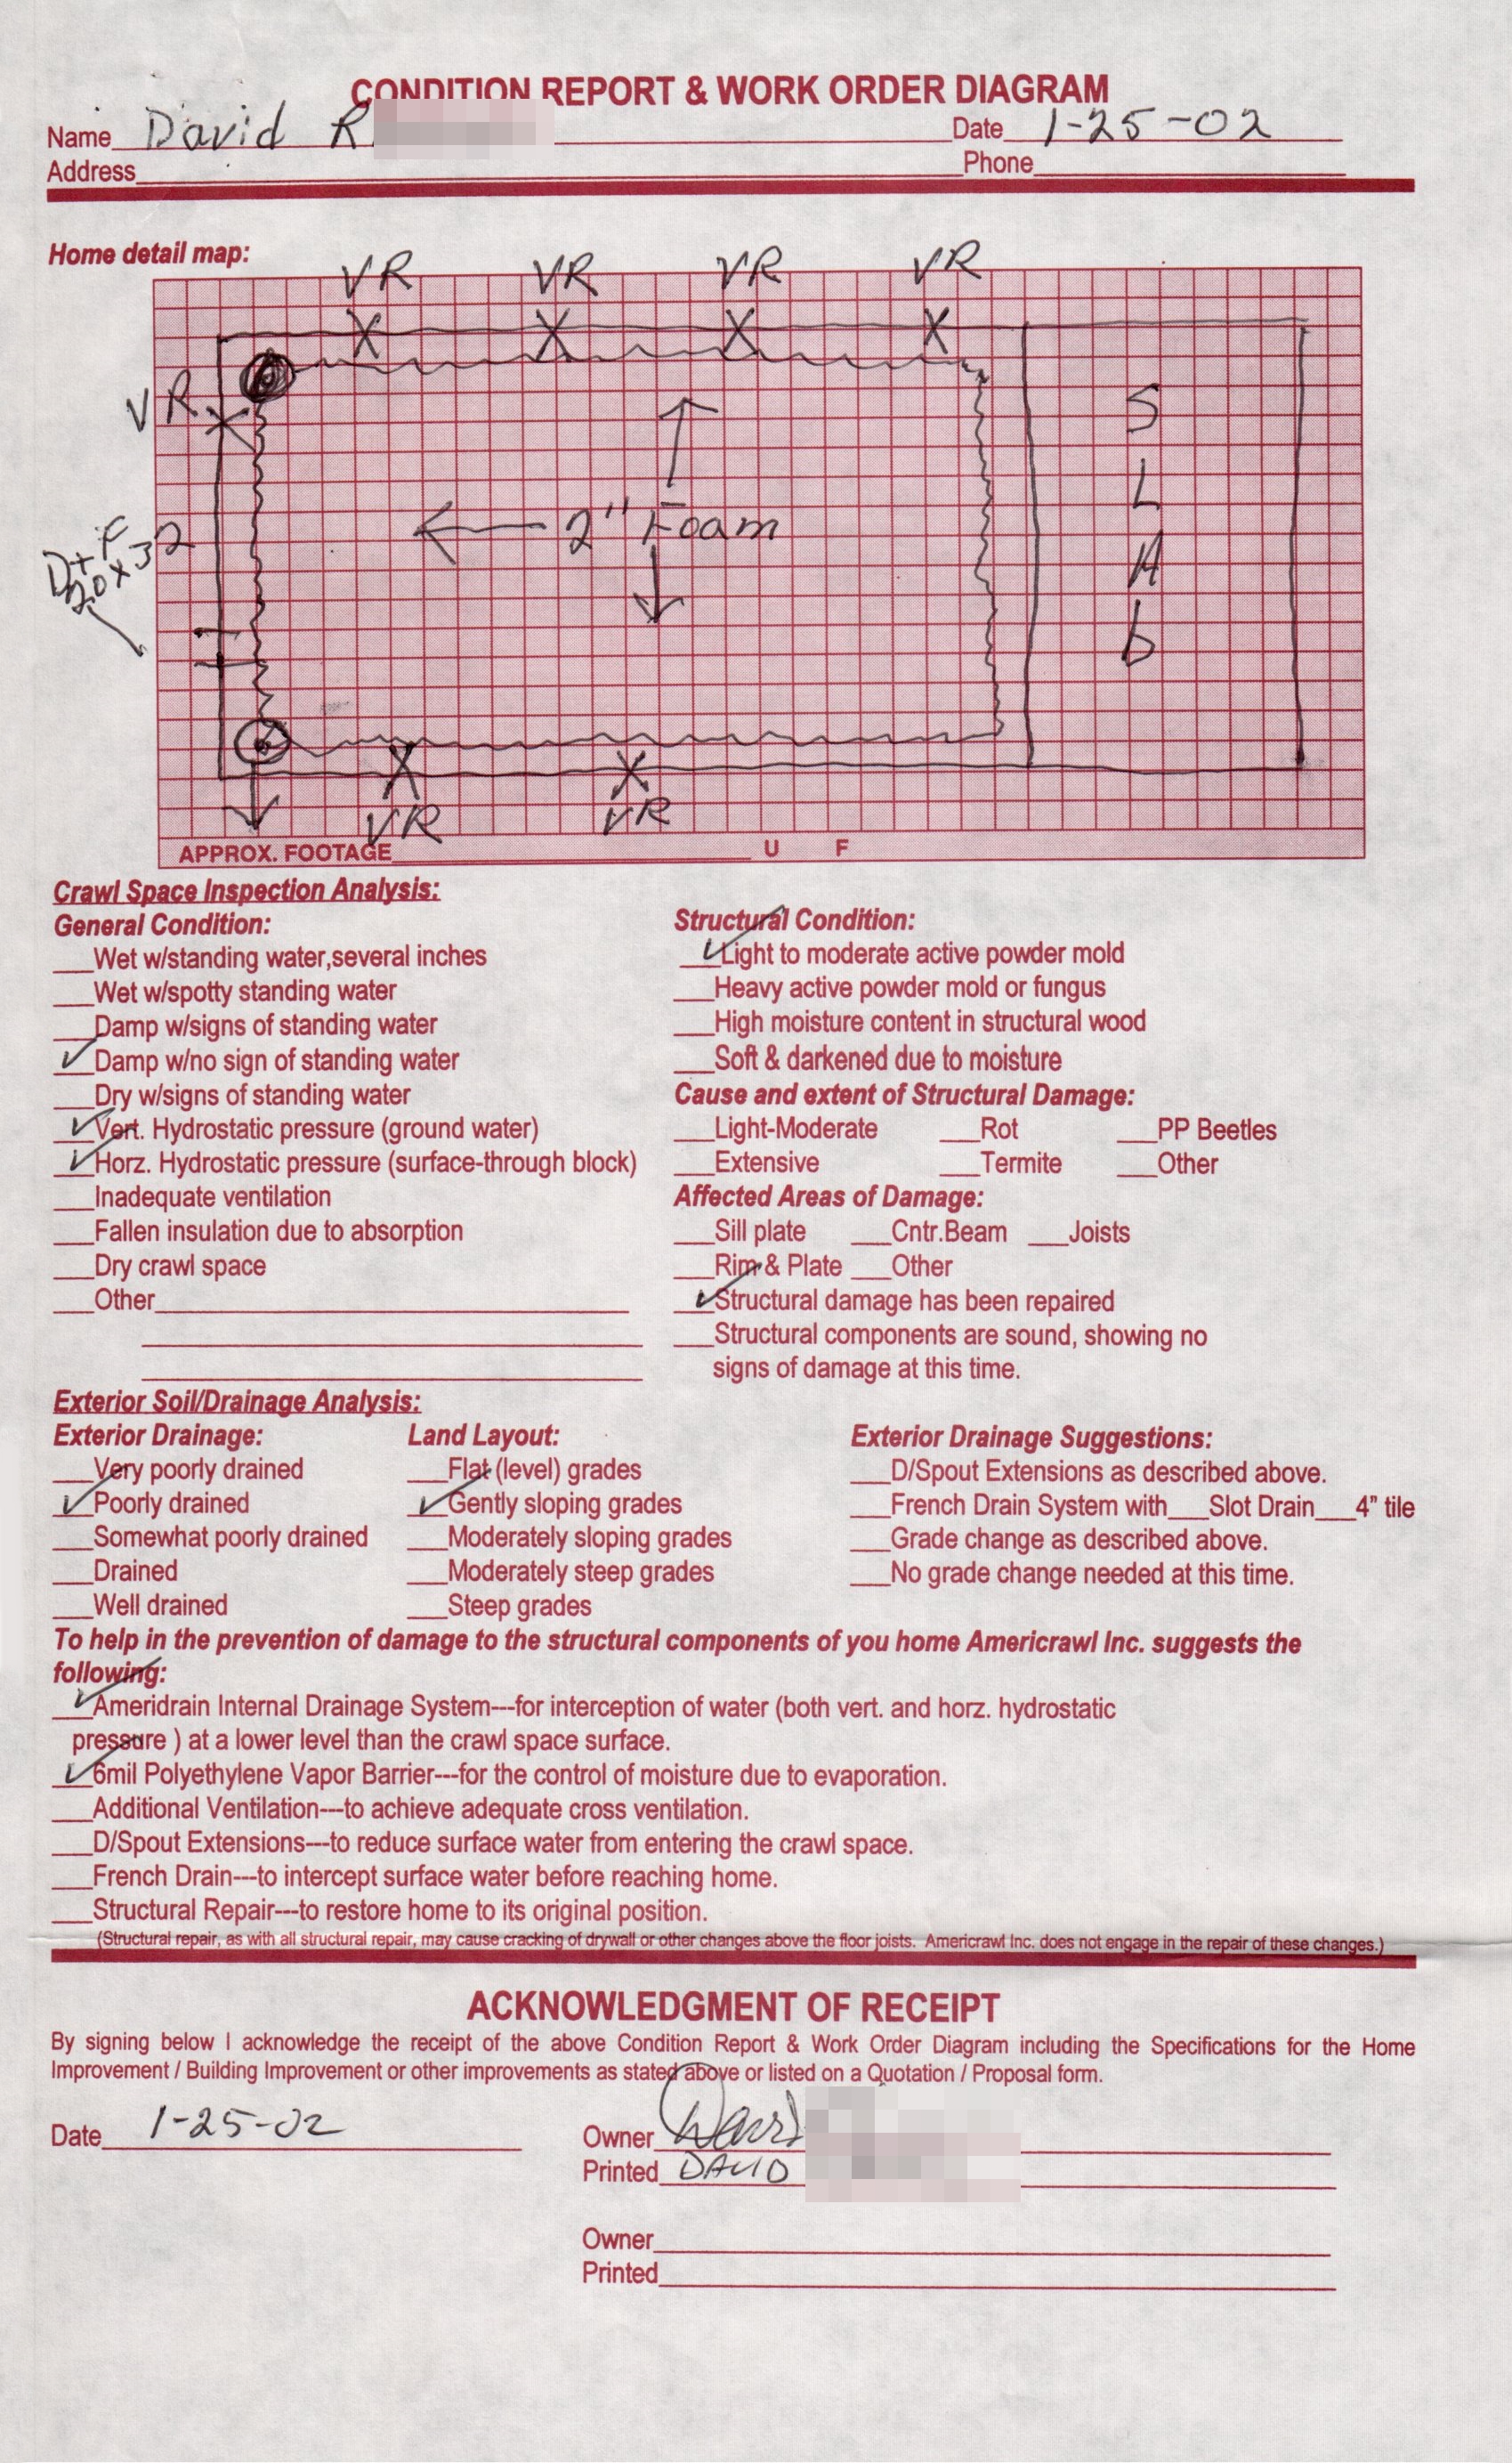 CONDITION REPORT & WORK ORDER DIAGRAM
Name David R. Date 1-25-02
Address Phone
Home detail map:
VR VR VR VR
X X X X
VR X
S
L
A
b
2" Foam
D+F
20x32
X X
VR VR
APPROX. FOOTAGE U F
Crawl Space Inspection Analysis:
General Condition:
Wet w/standing water,several inches
Wet w/spotty standing water
Damp w/signs of standing water
✓ Damp w/no sign of standing water
Dry w/signs of standing water
✓ Vert. Hydrostatic pressure (ground water)
✓ Horz. Hydrostatic pressure (surface-through block)
Inadequate ventilation
Fallen insulation due to absorption
Dry crawl space
Other
Structural Condition:
✓ Light to moderate active powder mold
Heavy active powder mold or fungus
High moisture content in structural wood
Soft & darkened due to moisture
Cause and extent of Structural Damage:
Light-Moderate Rot PP Beetles
Extensive Termite Other
Affected Areas of Damage:
Sill plate Cntr.Beam Joists
Rim & Plate Other
✓ Structural damage has been repaired
Structural components are sound, showing no
signs of damage at this time.
Exterior Soil/Drainage Analysis:
Exterior Drainage:
Very poorly drained
✓ Poorly drained
Somewhat poorly drained
Drained
Well drained
Land Layout:
Flat (level) grades
✓ Gently sloping grades
Moderately sloping grades
Moderately steep grades
Steep grades
Exterior Drainage Suggestions:
D/Spout Extensions as described above.
French Drain System with Slot Drain 4" tile
Grade change as described above.
No grade change needed at this time.
To help in the prevention of damage to the structural components of you home Americrawl Inc. suggests the
following:
✓ Ameridrain Internal Drainage System---for interception of water (both vert. and horz. hydrostatic
pressure ) at a lower level than the crawl space surface.
✓ 6mil Polyethylene Vapor Barrier---for the control of moisture due to evaporation.
Additional Ventilation---to achieve adequate cross ventilation.
D/Spout Extensions---to reduce surface water from entering the crawl space.
French Drain---to intercept surface water before reaching home.
Structural Repair---to restore home to its original position.
(Structural repair, as with all structural repair, may cause cracking of drywall or other changes above the floor joists. Americrawl Inc. does not engage in the repair of these changes.)
ACKNOWLEDGMENT OF RECEIPT
By signing below I acknowledge the receipt of the above Condition Report & Work Order Diagram including the Specifications for the Home
Improvement / Building Improvement or other improvements as stated above or listed on a Quotation / Proposal form.
Date 1-25-02
Owner David
Printed DAVID
Owner
Printed